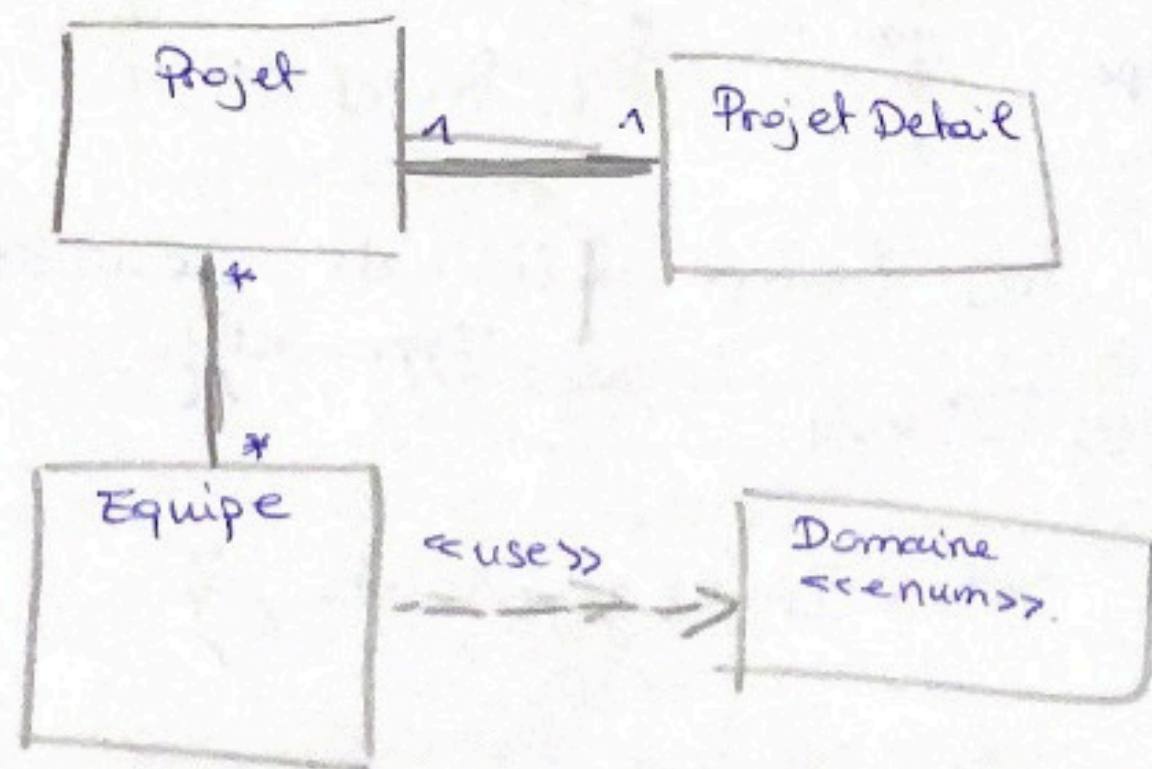 Projet
1 1
Projet Detail
*
*
Equipe
<<use>>
Domaine
<<enum>>.